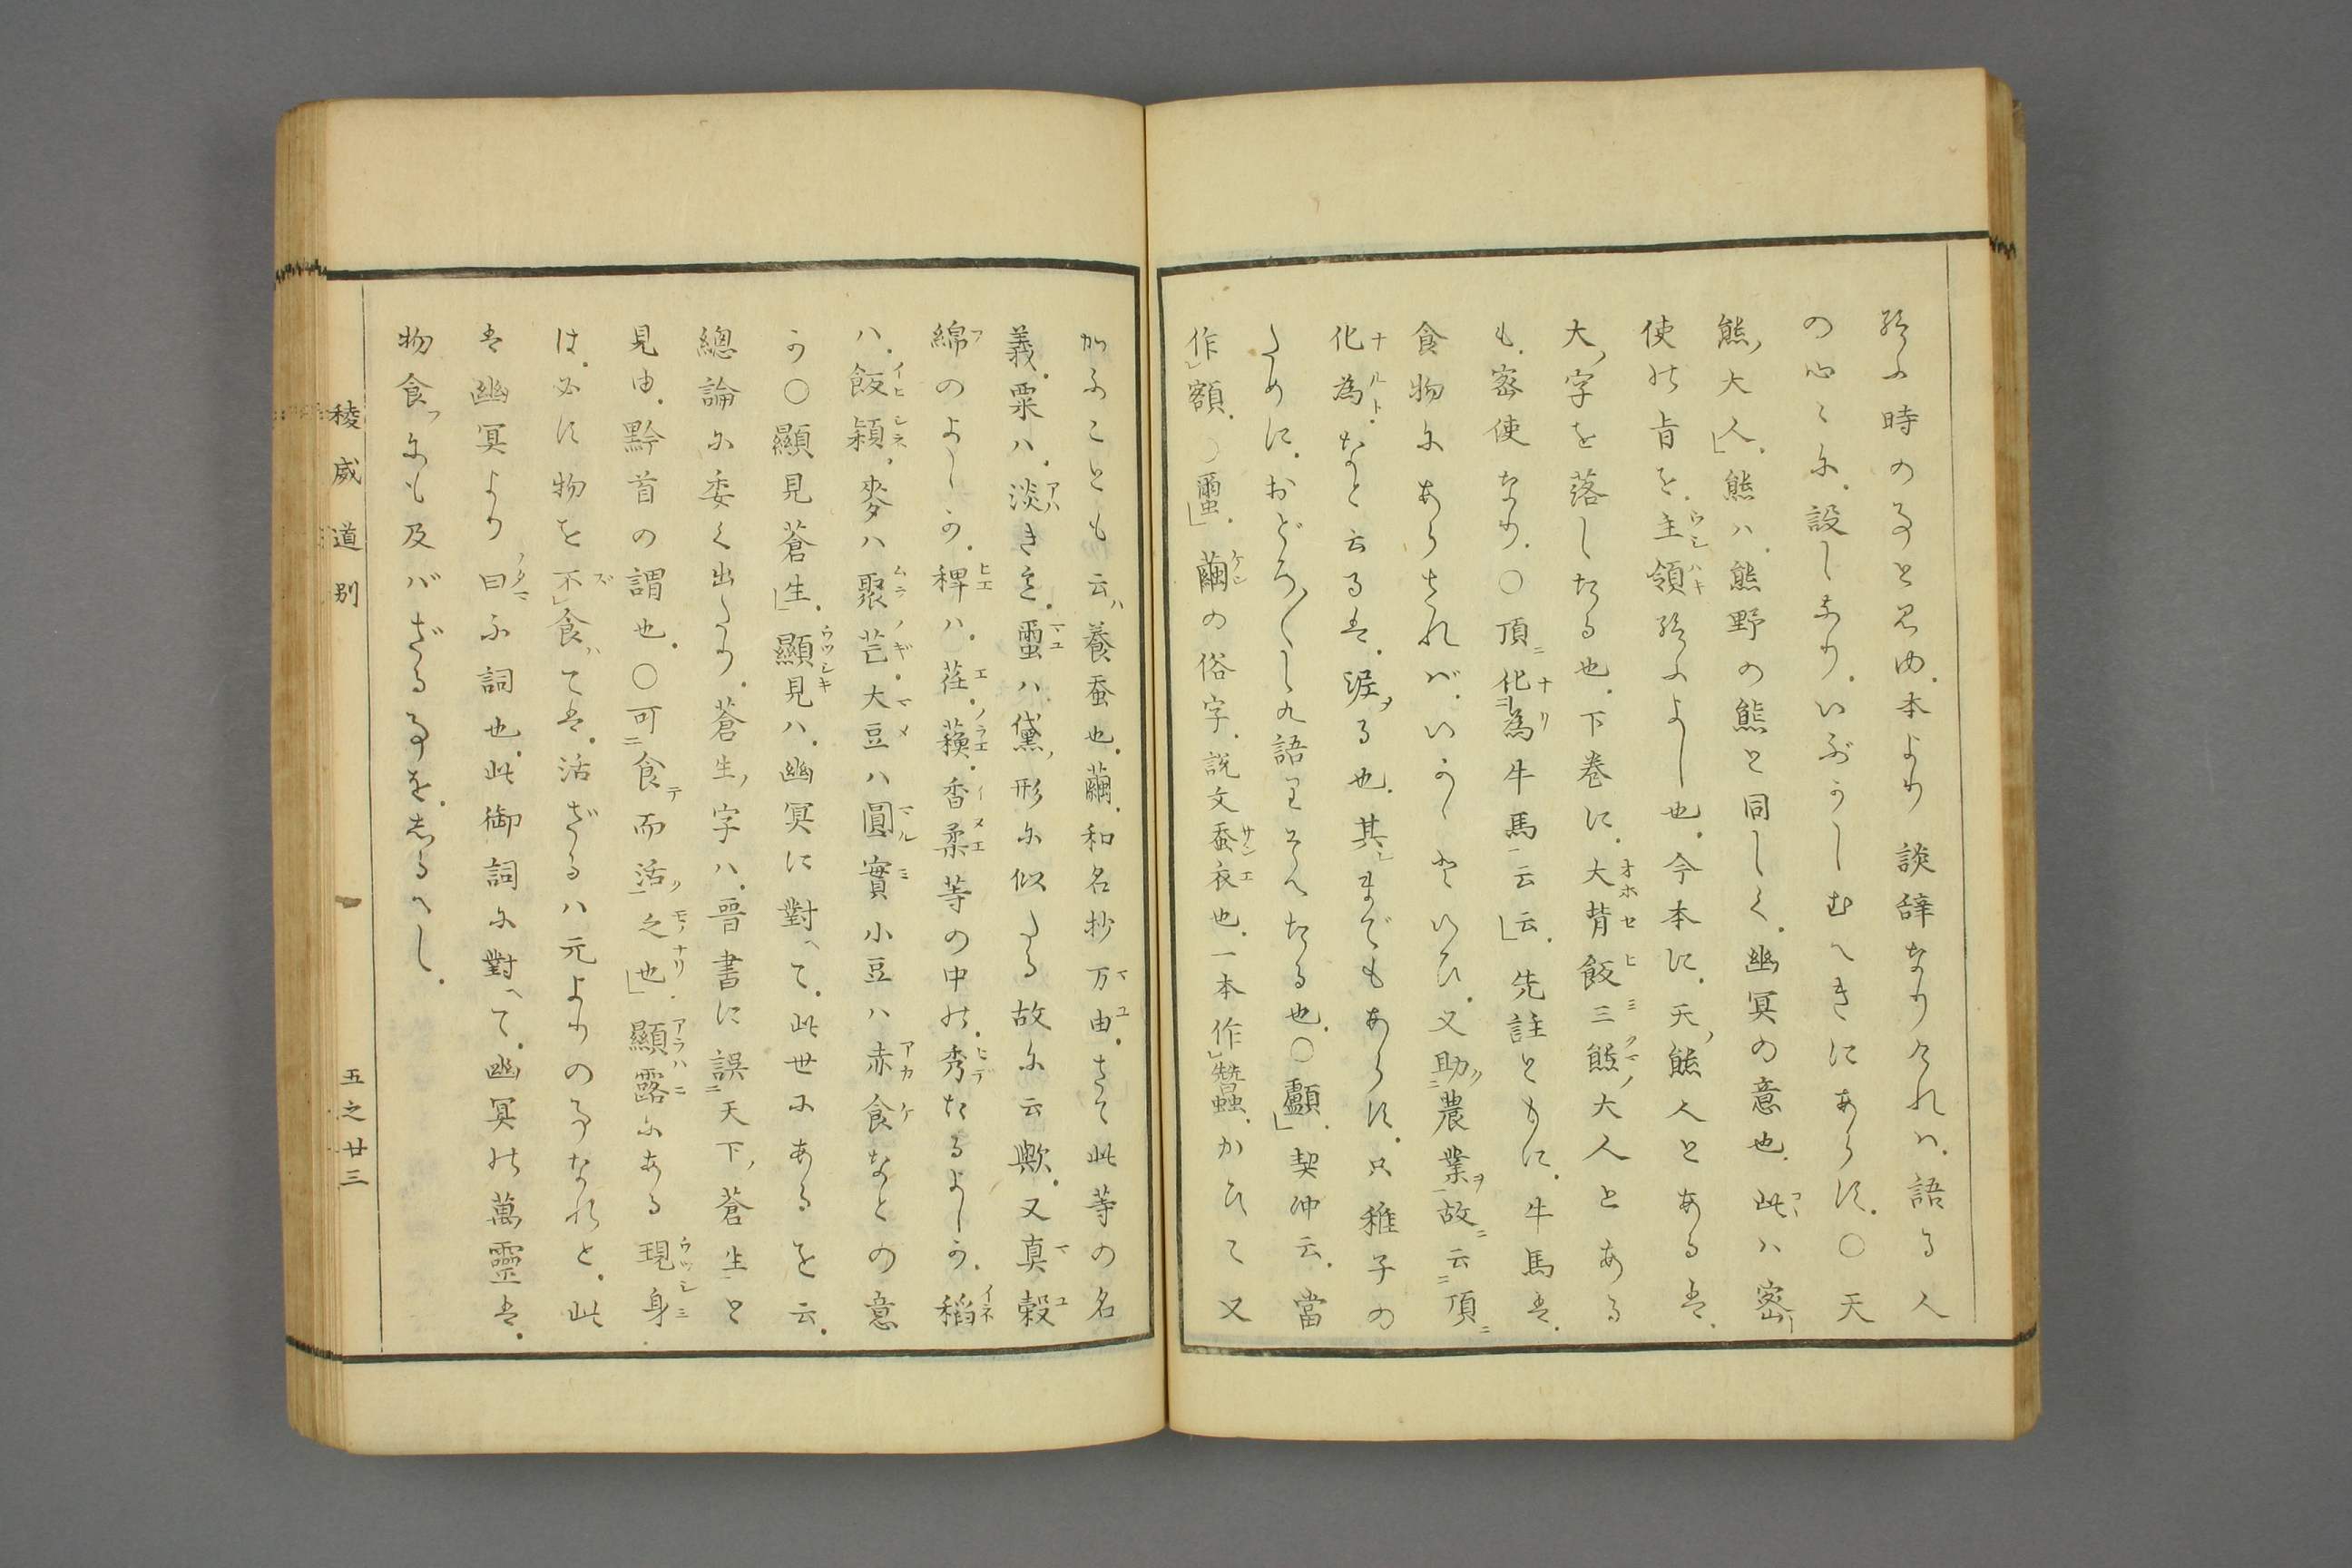 給ふ時の事と思ゆ.本より談辞なりければ.語る人
の心々に.設しなり.いぶかしむへきにあらず.〇天
熊大人.熊ハ.熊野の熊と同しく.幽冥の意也.此ハ密
使の旨を.主領給ふよし也.今本に.天熊人とあるは.
大字を落したる也.下巻に.大背飯三熊大人とある
も.密使なり.〇頂化為牛馬云云.先註ともに.牛馬は.
食物にあらされバ.いかゝといひ.又助農業故云頂
化為.なと云るは.泥る也.其までもあらず.只稚子の
ために.おどろ〳〵しく語そへたる也.〇顱.契沖云.當
作額.〇蠒.繭の俗字.説文蚕衣也.一本作蠶.かひて又
かふことも云.養蚕也.繭.和名抄万由.さて此等の名
義.粟ハ.淡き意.蠒ハ黛形に似たる故に云歟.又真穀
綿のよしか.稗ハ.荏.蘓.香柔等の中の.秀たるよしか.稻
ハ.飯穎.麥ハ聚芒.大豆ハ圓實小豆ハ赤食なとの意
か〇顯見蒼生.顯見ハ.幽冥に對へて.此世にあるを云.
總論に委く出たり.蒼生字ハ.晋書に誤天下蒼生と
見由.黔首の謂也.〇可食而活之也.顯露にある現身
は.必ず物を不食ては.活ざるハ元よりの事なれと.此
は幽冥より曰ふ詞也.此御詞に對へて.幽冥の萬靈は.
物食にも及バざる事を.しるへし.
稜威道別
五之廿三